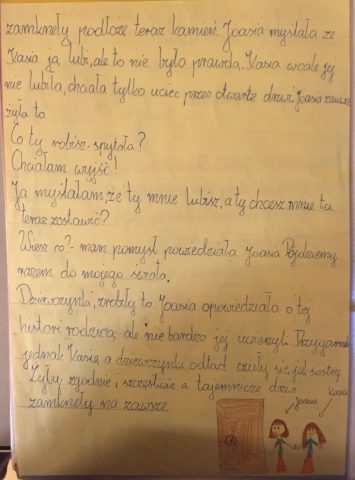 zamknęły podłożę teraz kamień. Joasia myslała że
Kasia ją lubi, ale to nie było prawdą. Kasia wcale jej
nie lubiła, chciała tylko uciec przez otwarte drzwi. Joasia zauwa
żyła to
Co ty robisz - spytała?
Chciałam wyjść!
Ja myślałam, że ty mnie lubisz, a ty chcesz mnie tu
teraz zostawić?
Wiesz co? - mam pomysł powiedziała Joasia Pójdziemy
razem do mojego
Dziewczynki, zrobiły to. Joasia opowiedziała o tej
histori rodzicą, ale nie bardzo jej uwierzyli. Przygarneli
jednak Kasię, a dziewczynki odtąd czuły się jak siostry
Żyły zgodnie i szczęśliwie a tajemnicze drzwi
zamknęły na zawsze.
Joasia
Kasia